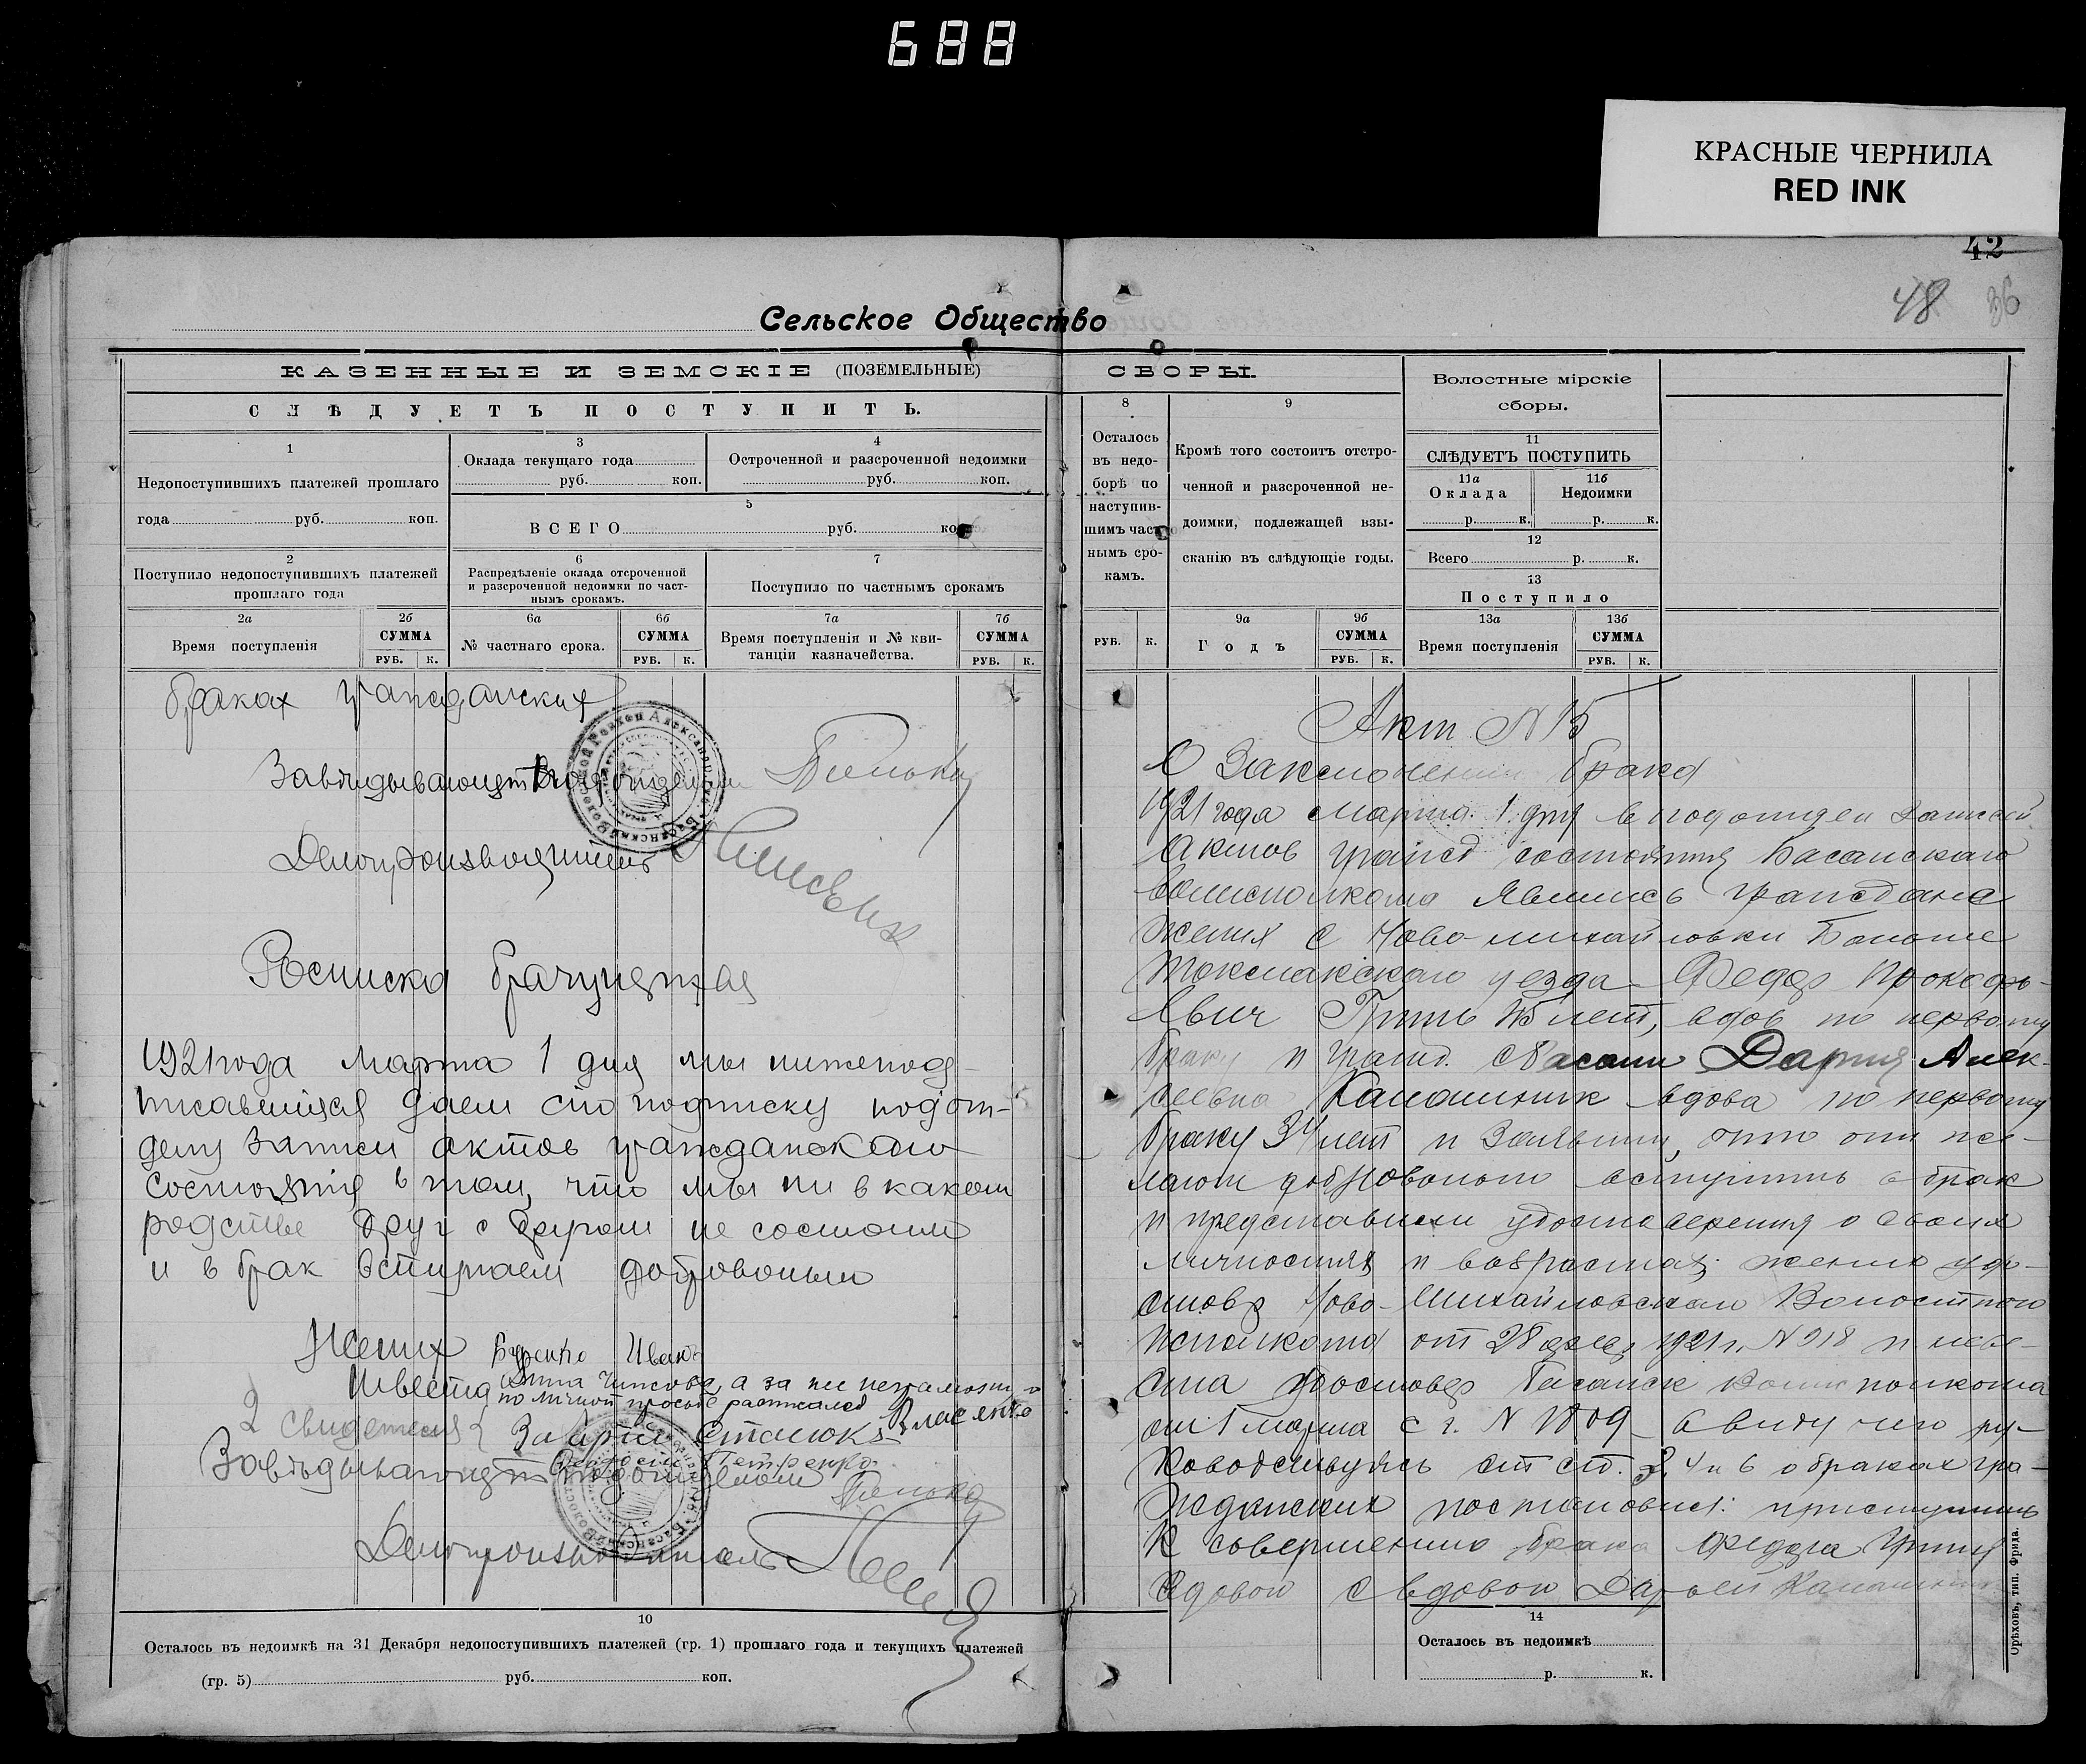 688
КРАСНЫЕ ЧЕРНИЛА
RED INK
42
48 36
Сельское Общество
КАЗЕННЫЕ И ЗЕМСКІЕ (ПОЗЕМЕЛЬНЫЕ)
СЛѢДУЕТЪ ПОСТУПИТЬ.
1
Недопоступившихъ платежей прошлаго
года руб. коп.
3
Оклада текущаго года
руб. коп.
4
Остроченной и разсроченной недоимки
руб. коп.
5
ВСЕГО руб. ко
2
Поступило недопоступившихъ платежей
прошлаго года
6
Распредѣленіе оклада отсроченной
и разсроченной недоимки по част-
нымъ срокамъ.
7
Поступило по частнымъ срокамъ
2а
Время поступленія
2б
СУММА
РУБ. К.
6а
№ частнаго срока.
6б
СУММА
РУБ. К.
7а
Время поступленія и № кви-
танціи казначейства.
7б
СУММА
РУБ. К.
браках гражданских
Завѣидывающет подотделом
Делопроизводитель
Росписка брачущехся
1921 года марта 1 дня мы нижепод-
писавшиеся даем сию подписку подот-
делу записи актов гражданского
состояния в том, что мы ни в каком
родстве друг с другом не состоим
и в брак вступаем добровольно
Жених Иван
Невеста а за не неграмотн
по личной просьбе расписался Власенко
2 свидетеля
Петренко
Завѣдывающет подотделом
Делопроизводитель
10
Осталось въ недоимкѣ на 31 Декабря недопоступившихъ платежей (гр. 1) прошлаго года и текущихъ платежей
(гр. 5) руб. коп.
СБОРЫ.
8
Осталось
въ недо-
борѣ по
наступив-
шимъ част
нымъ сро-
камъ.
РУБ. К.
9
Кромѣ того состоитъ отстро-
ченной и разсроченной не-
доимки, подлежащей взы-
сканію въ слѣдующіе годы.
9а
Годъ
9б
СУММА
РУБ. К.
Волостные мірскіе
сборы.
11
СЛѢДУЕТЪ ПОСТУПИТЬ
11а
Оклада
р. к.
11б
Недоимки
р. к.
12
Всего р. к.
13
Поступило
13а
Время поступленія
13б
СУММА
РУБ. К.
Акт N 15
О Заключении брака
1921 года марта 1 дня в подотдел записей
актов гражд состояния Басанского
волисполкома явились граждане
жених с Ново-михайловки Больше
Токмакского уезда Федор Прокофь-
евич лет, вдов по первому
браку и гражд. с Басани Дария Алек-
сеевна Калашник вдова по первому
браку 34 лет и заявили, что они же-
лают добровольно вступить в брак
и представили удостоверения о своих
личностях и возрастах: жених удо-
стовер Ново-Михайловского Волостного
исполкома от 28 1921 г. N 918 и неве-
ста удостовер Басанск Волисполкома
от 1 марта с г. N 1809 в виду чего ру-
ководствуясь ст ст. 3, 4 и 6 о браках гра-
жданских постановил: приступить
к совершению брака Федора
вдовой с вдовой Дарьей Калашник
14
Осталось въ недоимкѣ
р. к.
Орѣховъ, тип. Фрид.